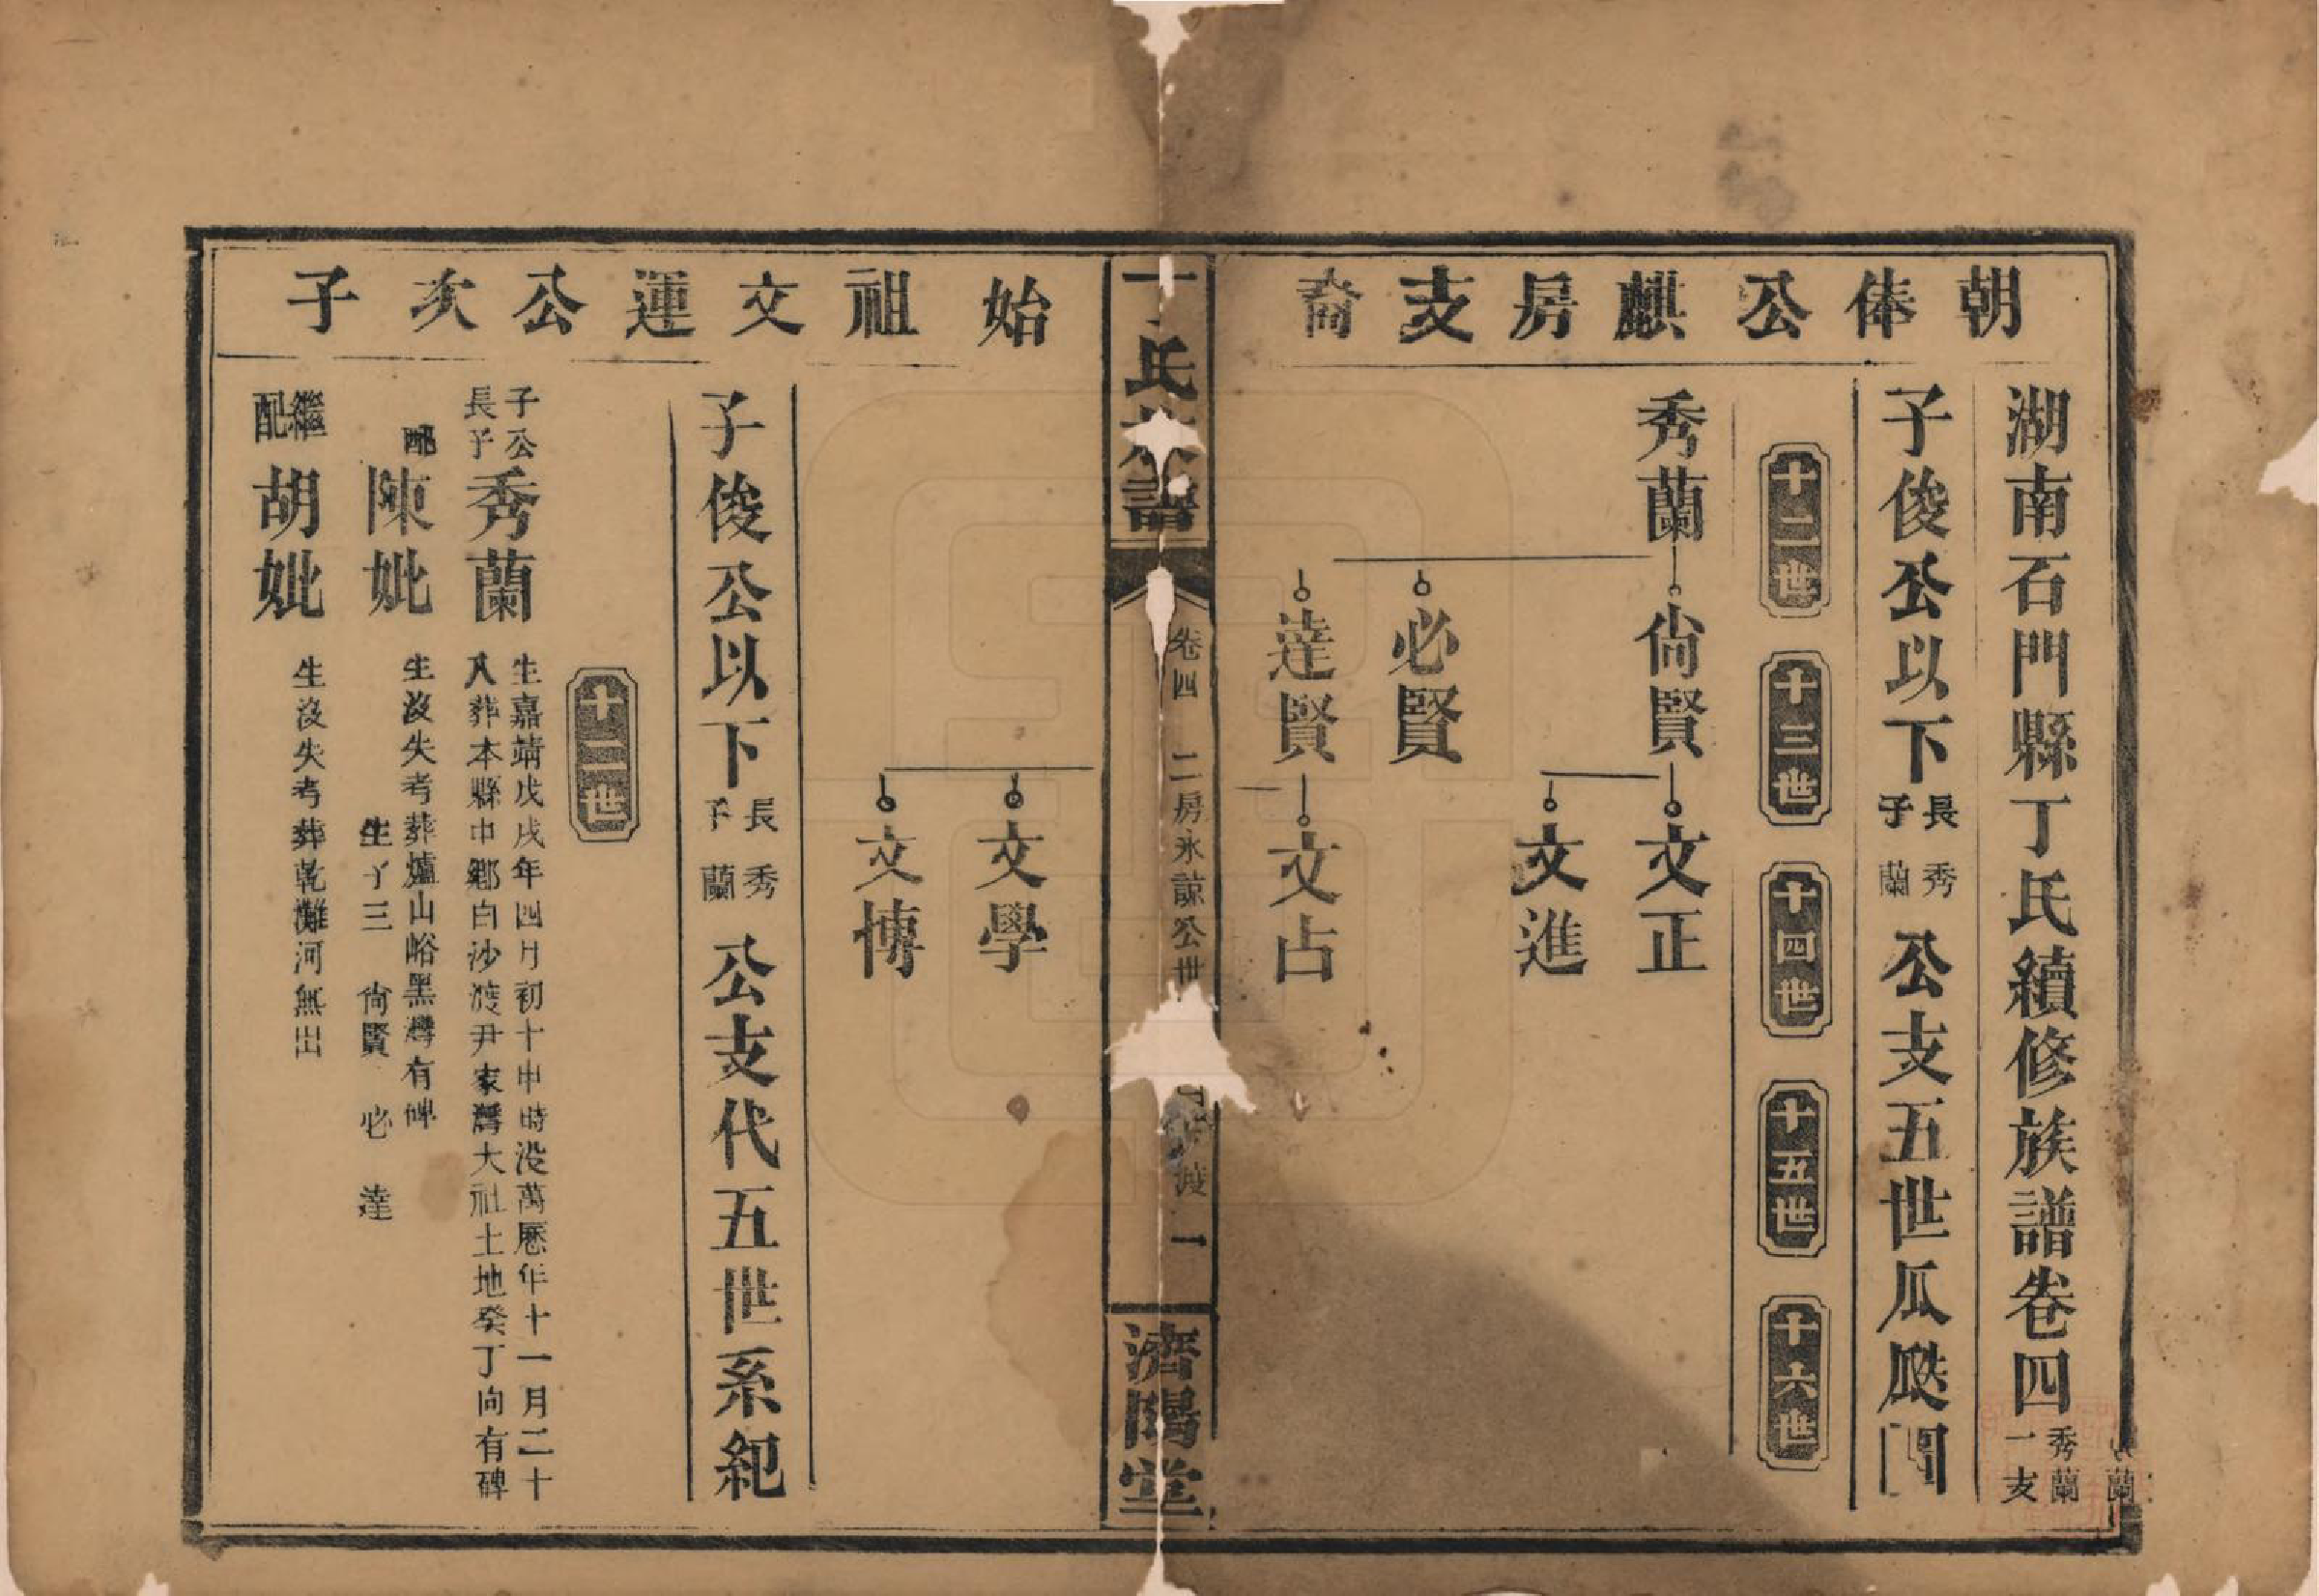 朝俸公麒房支裔
湖南石門縣丁氏續修族譜卷四
秀蘭
一支
子俊公以下
長子
秀蘭
公支五世瓜瓞圖
十二世
十三世
十四世
十五世
十六世
秀蘭
尙賢
文正
文進
必賢
達賢
文占
丁氏族譜
卷四
二房永諒公世
渡
一
濟陽堂
始祖文運公次子
文學
文博
子俊公以下
長子
秀蘭
公支代五世系紀
十二世
子公
長子
秀蘭
生嘉靖戊戌年四月初十申時没萬歷年十一月二十
八葬本縣中鄉白沙渡尹家灣大祖土地癸丁向有碑
配
陳妣
生没失考葬爐山峪黑灣有碑
生子三 尙賢 必 達
繼配
胡妣
生没失考葬乾灘河無出